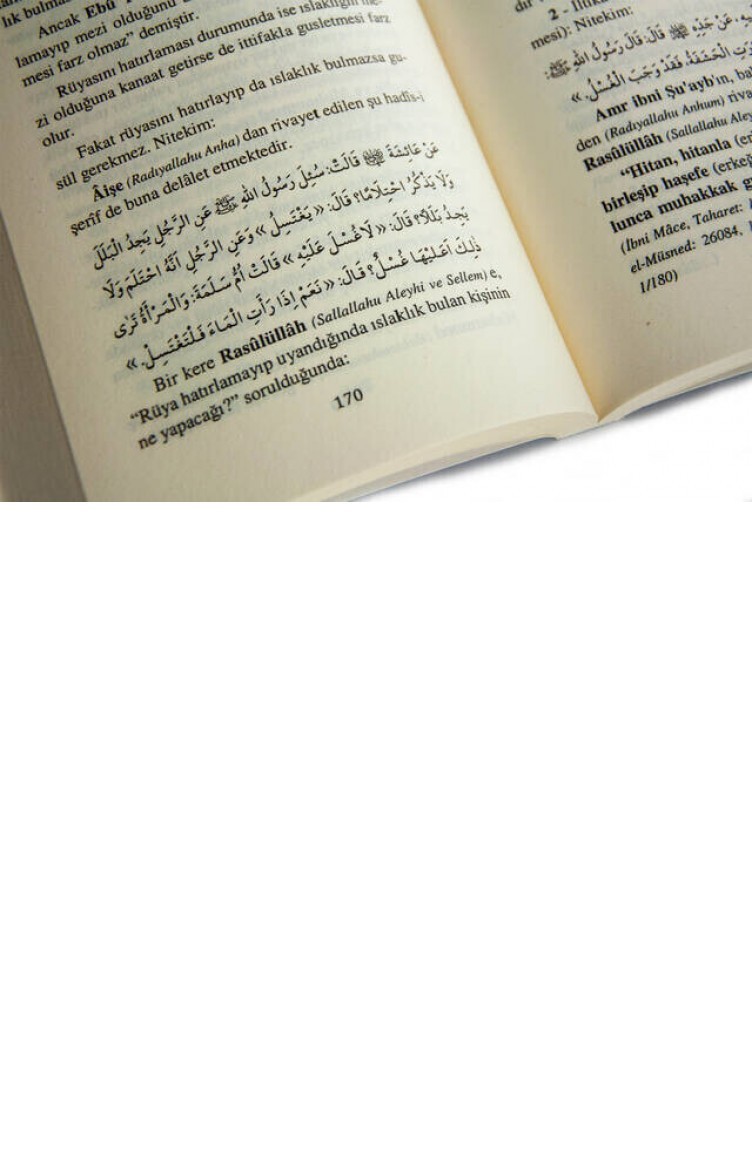 lık bulma
Ancak Ebû
lamayıp mezi olduğunu
mesi farz olmaz” demiştir.
Rüyasını hatırlaması durumunda ise ıslaklığın me-
zi olduğuna kanaat getirse de ittifakla gusletmesi farz
olur.
Fakat rüyasını hatırlayıp da ıslaklık bulmazsa gu-
sül gerekmez. Nitekim:
Âişe (Radıyallahu Anha) dan rivayet edilen şu hadîs-i
şerîf de buna delâlet etmektedir.
عَنْ عَائِشَةَ ﷺ قَالَتْ: سُئِلَ رَسُولُ اللهِ ﷺ عَنِ الرَّجُلِ يَجِدُ الْبَلَلَ
وَلَا يَذْكُرُ احْتِلَامًا؟ قَالَ: « يَغْتَسِلُ » وَعَنِ الرَّجُلِ اَنَّهُ احْتَلَمَ وَلَا
يَجِدُ بَلَلًا؟ قَالَ: « لَا غُسْلَ عَلَيْهِ » قَالَتْ اُمُّ سَلَمَةَ: وَالْمَرْاَةُ تَرٰى
ذٰلِكَ اَعَلَيْهَا غُسْلٌ؟ قَالَ: « نَعَمْ اِذَا رَاَتِ الْمَاءَ فَلْتَغْتَسِلْ. »
Bir kere Rasûlüllâh (Sallallahu Aleyhi ve Sellem) e,
“Rüya hatırlamayıp uyandığında ıslaklık bulan kişinin
ne yapacağı?” sorulduğunda:
170
dır
2 - İltika
mesi): Nitekim:
عَنْ جَدِّهِ ﷺ قَالَ: قَالَ رَسُولُ اللهِ ﷺ:
الْحَشَفَةُ، فَقَدْ وَجَبَ الْغُسْلُ. »
Amr ibni Şu'ayb'ın, ba
den (Radıyallahu Anhum) riva
Rasûlüllâh (Sallallahu Aley
“Hitan, hitanla (erke
birleşip haşefe (erke
lunca muhakkak g
(İbni Mâce, Taharet:
el-Müsned: 26084,
1/180)